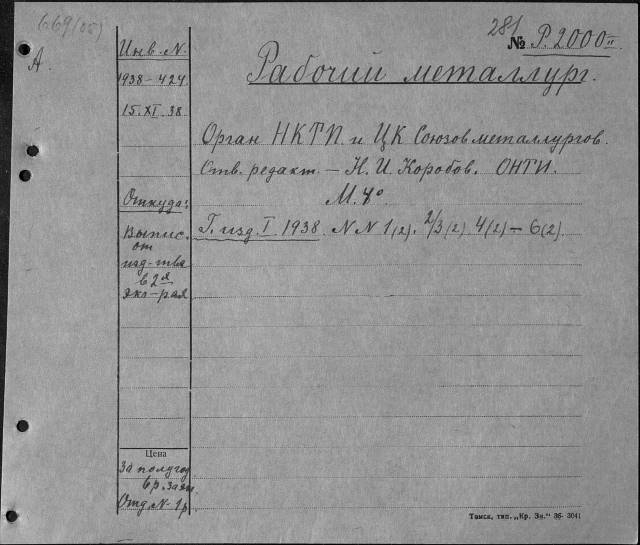 669(05)
А.
281
№ Р.2000 II
Рабочий металлург.
Инв. N.
1938-424
15.XI.38
Откуда:
Выпис.
от
изд-тва
в 2 я
экз-рая
Орган НКТП и ЦК Союзов металлургов.
Отв. редакт. - Н. И. Коробов. ОНТИ.
М. 4°
Г. изд. I 1938. NN 1(2). 2/3(2) 4(2) - 6(2).
Цена
За полугод
6 р.
Отд. N- 1 р.
Томск, тип. „Кр. Зн." 36- 3041